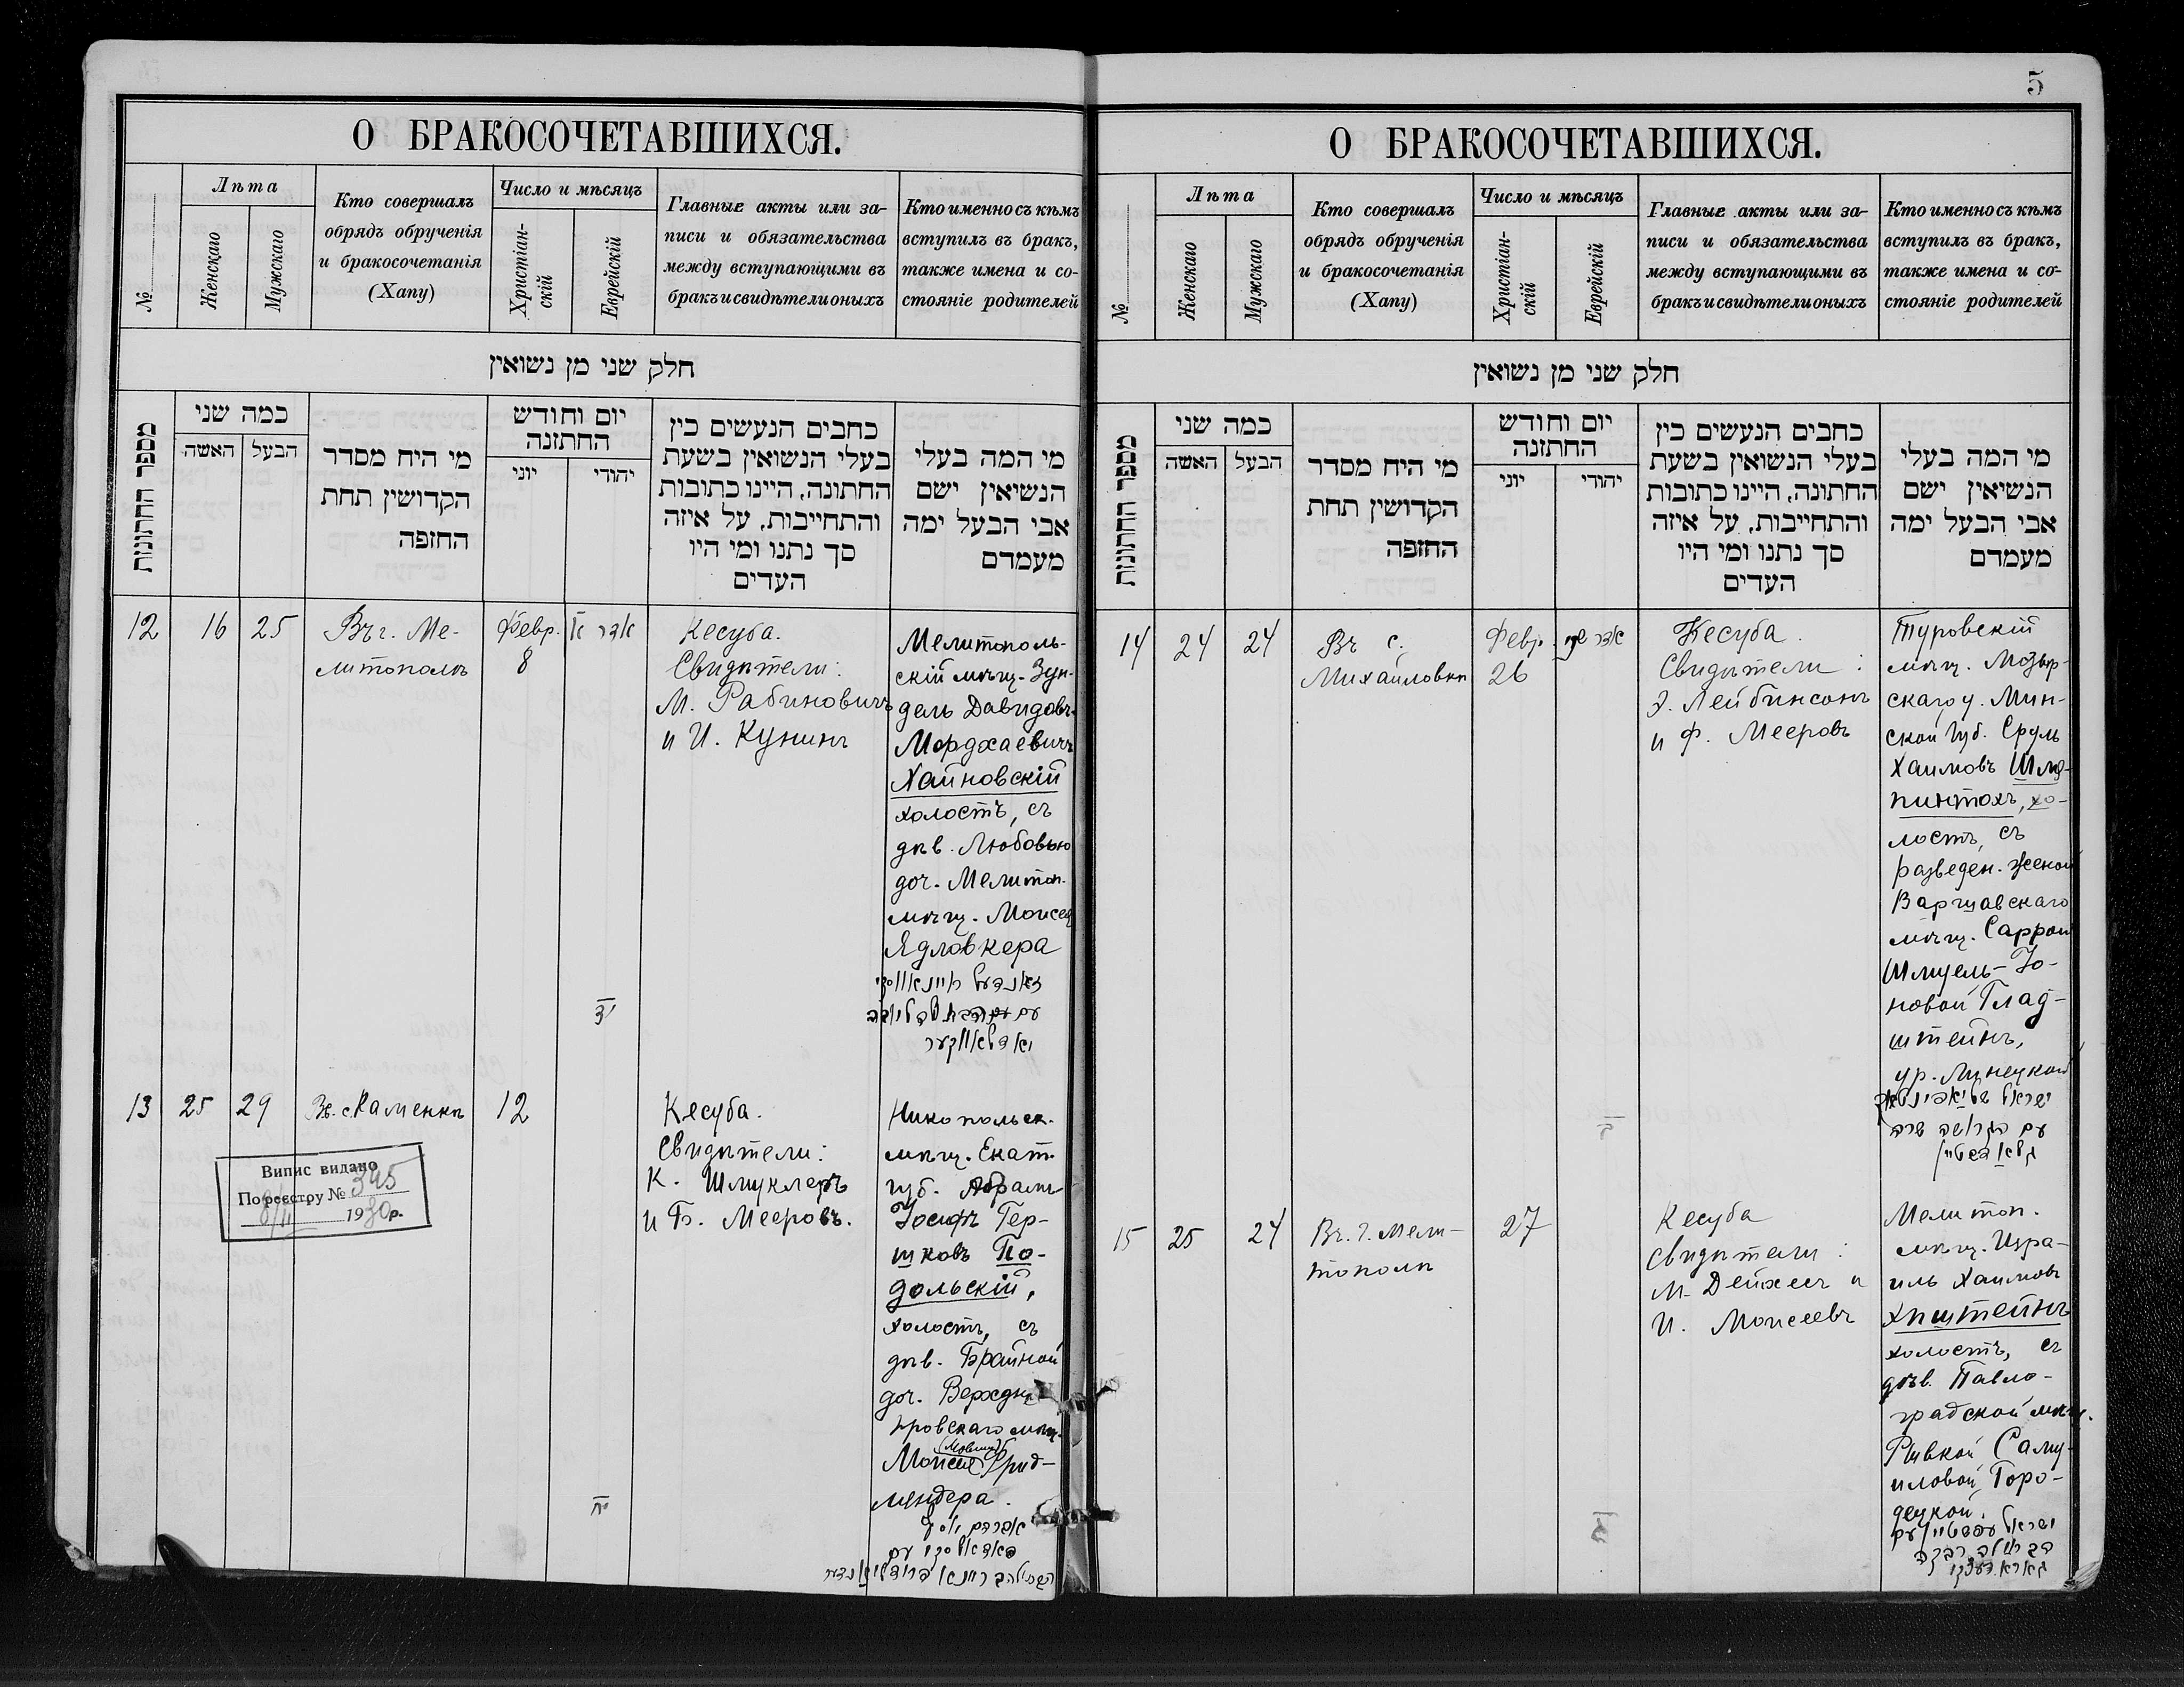 5
О БРАКОСОЧЕТАВШИХСЯ.
№
Лѣта
Женскаго
Мужскаго
Кто совершалъ
обрядъ обрученія
и бракосочетанія
(Хапу)
Число и мѣсяцъ
Христіан-
скій
Еврейскій
Главные акты или за-
писи и обязательства
между вступающими въ
бракъ и свидѣтели оныхъ
Кто именно съ кѣмъ
вступилъ въ бракъ,
также имена и со-
стояніе родителей
חלק שני מן נשואין
מספר החתונות
כמה שני
האשה
הבעל
מי היח מסדר
הקדושין תחת
החזפה
יום וחודש
החתזנה
יוני
יהודי
כחבים הנעשים כין
בעלי הנשואין בשעת
החתונה, היינו כתובות
והתחייבות, על איזה
סך נתנו ומי היו
העדים
מי המה בעלי
הנשיאין ישם
אבי הבעל ימה
מעמדם
12
16
25
Въ г. Ме-
литополѣ
Февр.
8
אדר א
יד
Кесуба.
Свидѣтели:
М. Рабиновичъ
и И. Кунинъ
Мелитополь-
скій мѣщ. Зун-
дель Давидовъ-
Мордхаевичъ
Хайновскій
холостъ, съ
дѣв. Любовью
доч. Мелитоп.
мѣщ. Моисея
Ядловкера
יאדלאווקער
13
25
29
Въ с. Каменкѣ
12
יח
Кесуба.
Свидѣтели:
К. Шмуклеръ
и Б. Мееровъ.
Никопольск.
мѣщ. Екат.
губ. Абрамъ-
Іосифъ Гер-
шковъ По-
дольскій,
холостъ, съ
дѣв. Брайной
доч. Верхднѣ
провскаго мѣщ.
Моисея Фрид-
лендера.
אברהם יוסף
פאדאלסקי עם
Випис видано
По реєстру № 345
8/II 1930 р.
О БРАКОСОЧЕТАВШИХСЯ.
№
Лѣта
Женскаго
Мужскаго
Кто совершалъ
обрядъ обрученія
и бракосочетанія
(Хапу)
Число и мѣсяцъ
Христіан-
скій
Еврейскій
Главные акты или за-
писи и обязательства
между вступающими въ
бракъ и свидѣтели оныхъ
Кто именно съ кѣмъ
вступилъ въ бракъ,
также имена и со-
стояніе родителей
חלק שני מן נשואין
מספר החתונות
כמה שני
האשה
הבעל
מי היח מסדר
הקדושין תחת
החזפה
יום וחודש
החתזנה
יוני
יהודי
כחבים הנעשים כין
בעלי הנשואין בשעת
החתונה, היינו כתובות
והתחייבות, על איזה
סך נתנו ומי היו
העדים
מי המה בעלי
הנשיאין ישם
אבי הבעל ימה
מעמדם
14
24
24
Въ с.
Михайловкѣ
Февр.
26
אדר שני
ב
Кесуба.
Свидѣтели:
Э. Лейбинсонъ
и Ф. Мееровъ
Туровскій
мѣщ. Мозыр-
скаго у. Мин-
ской губ. Сруль
Хаимовъ Шля-
пинтохъ, хо-
лостъ, съ
разведен. женой
Варшавскаго
мѣщ. Саррой
Шмуель-Іо-
новой Глад-
штейнъ,
ур. Лунецкой
עם הגרושה שרה
גלאדשטיין
15
25
24
Въ г. Мели-
тополѣ
27
ג
Кесуба
Свидѣтели:
М. Дейхесъ и
И. Моисеевъ
Мелитоп.
мѣщ. Изра-
иль Хаимовъ
Эпштейнъ
холостъ, съ
дѣв. Павло-
градской мѣщ.
Рывкой Саму-
иловой Горо-
децкой.
ישראל עפשטיין עם
הבתולה רבקה
גאראדעצקי